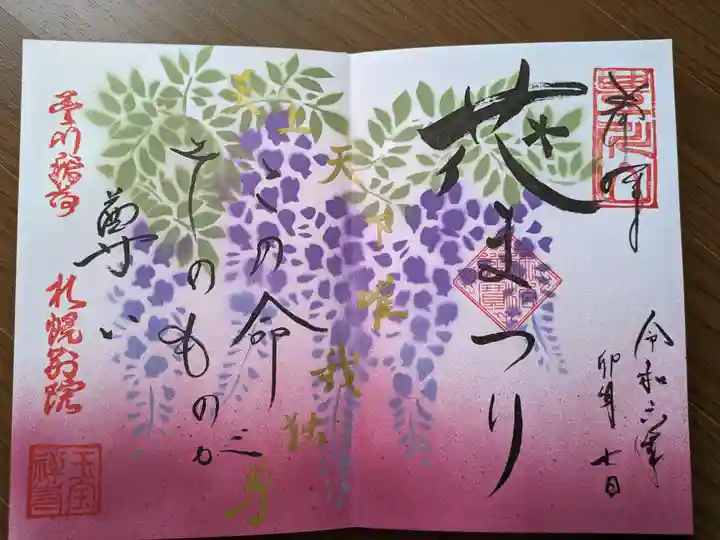 奉拝
令和六年
卯月 七日
花まつり
天上天下唯我独尊
この命
そのものが
尊い
豊川稲荷
札幌別院
玉宝禅寺